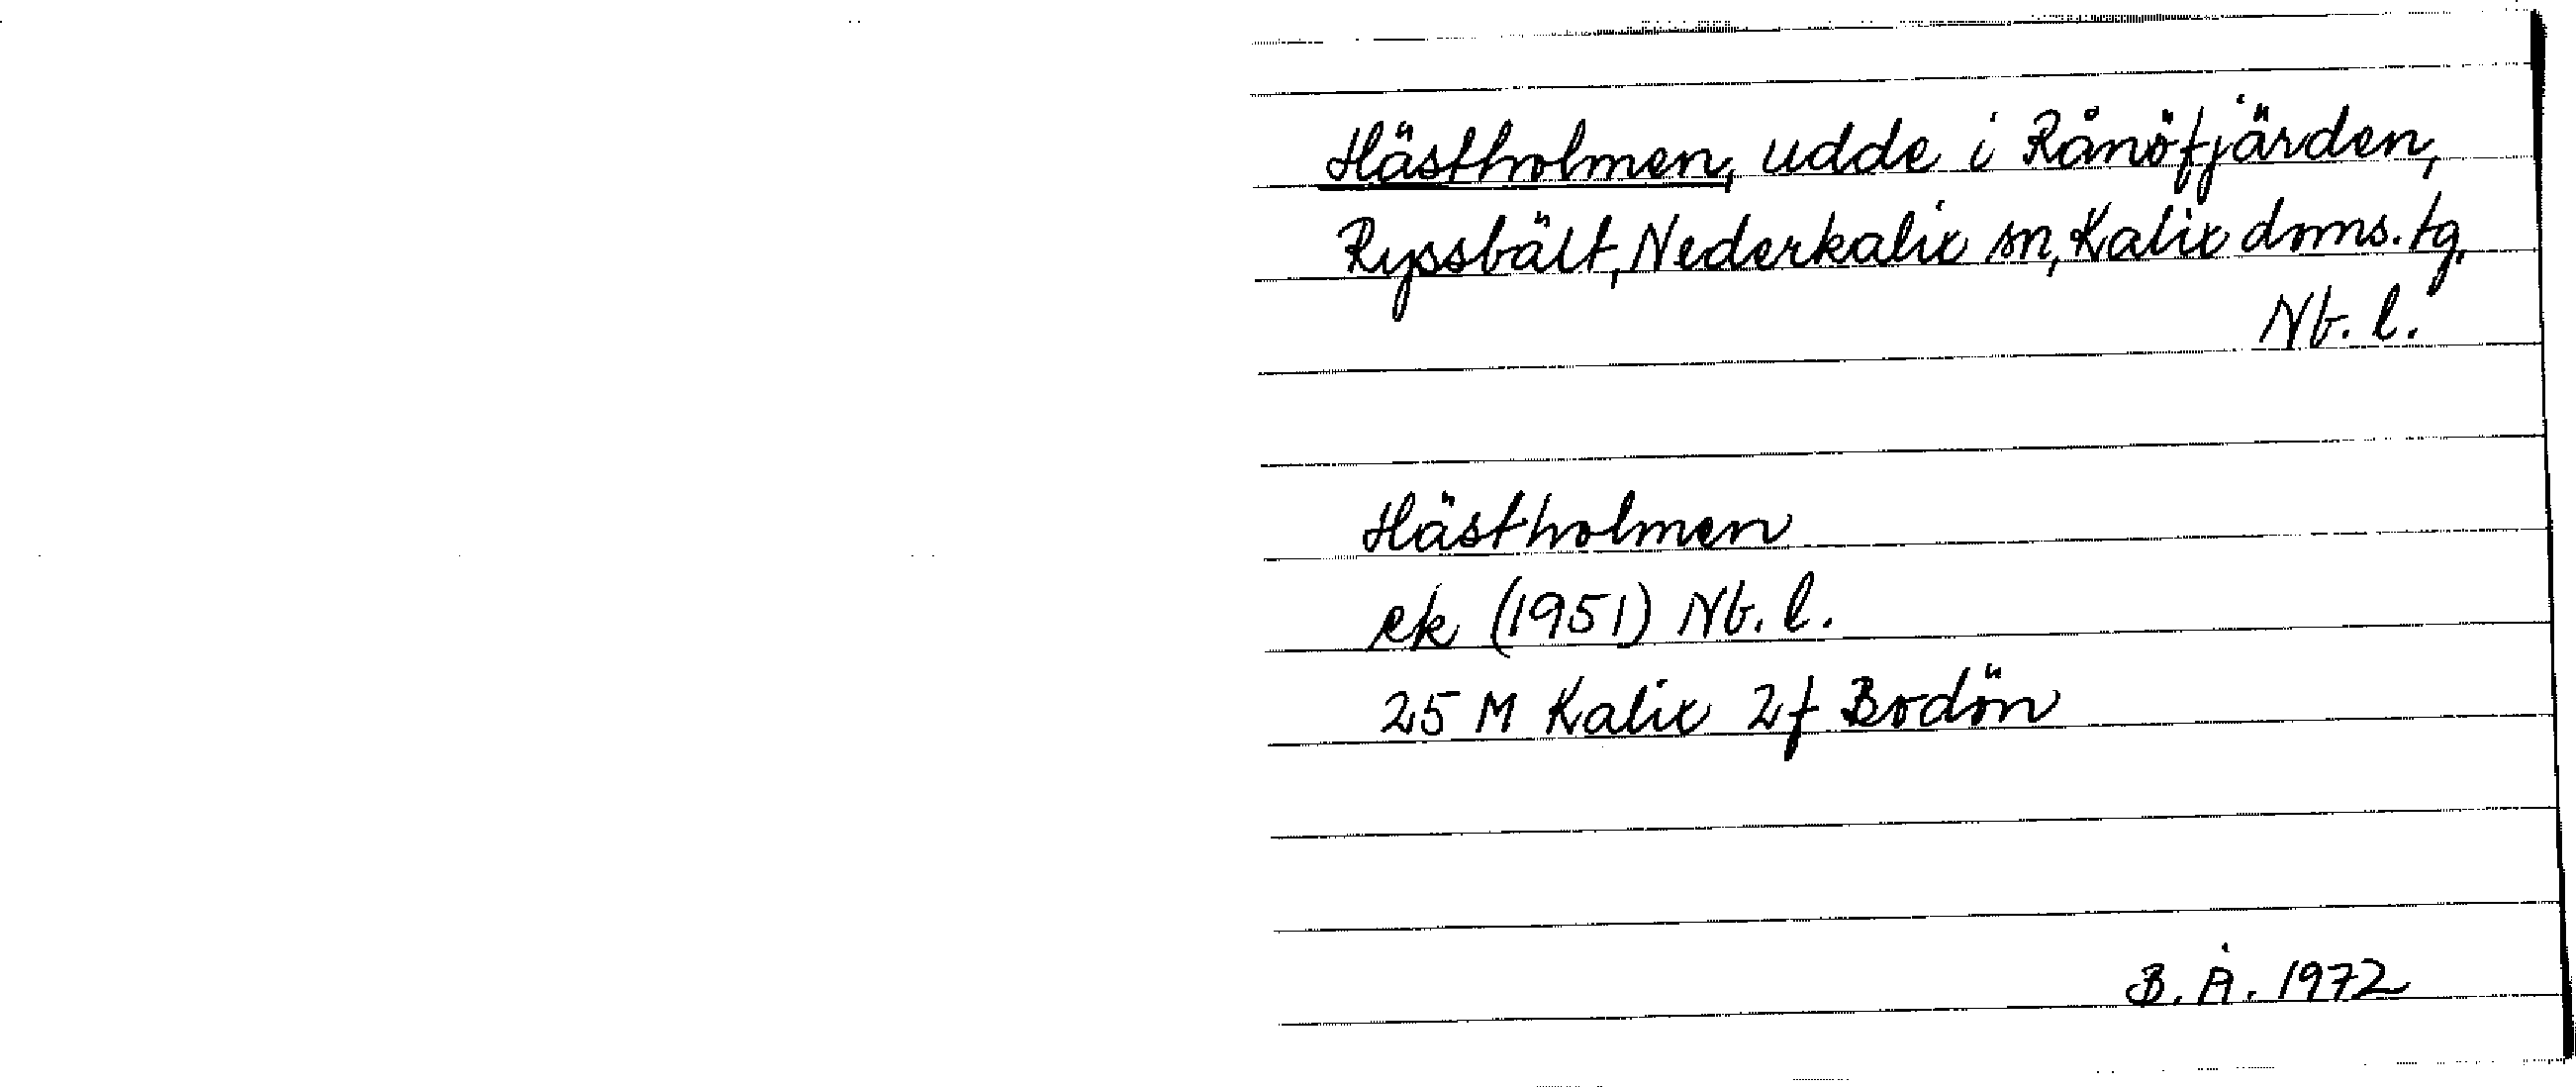 Hästholmen, udde i Rånöfjärden,
Ryssbält, Nederkalix sn, Kalix doms. tg,
Nb. l.
Hästholmen
ek (1951) Nb. l.
25 M Kalix 2f Bodön
B. Å. 1972